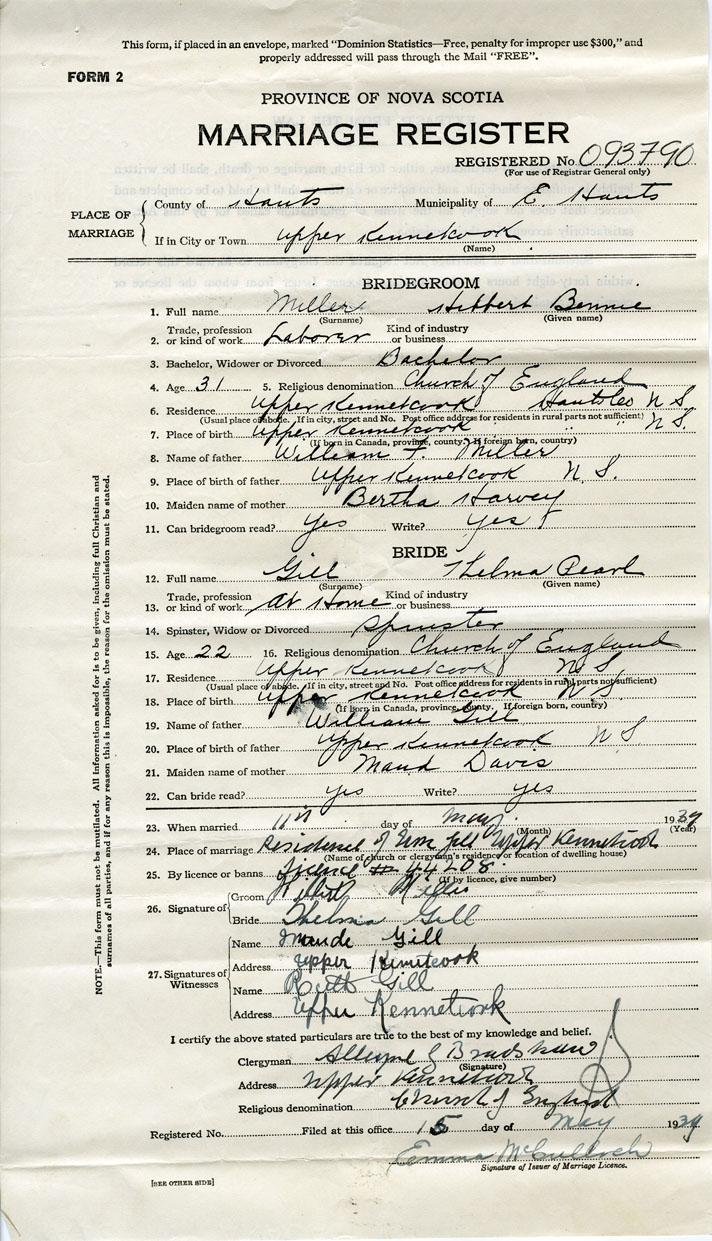 This form, if placed in an envelope, marked "Dominion Statistics—Free, penalty for improper use $300," and
properly addressed will pass through the Mail "FREE".
FORM 2
PROVINCE OF NOVA SCOTIA
MARRIAGE REGISTER
REGISTERED No. 093790
(For use of Registrar General only)
PLACE OF MARRIAGE
County of Hants Municipality of E. Hants
If in City or Town Upper Kennetcook
(Name)
BRIDEGROOM
1. Full name Miller Hibbert Bennie
(Surname) (Given name)
2. Trade, profession or kind of work Laborer Kind of industry or business
3. Bachelor, Widower or Divorced Bachelor
4. Age 31 5. Religious denomination Church of England
6. Residence Upper Kennetcook Hants Co N S.
(Usual place of abode. If in city, street and No. Post office address for residents in rural parts not sufficient)
7. Place of birth Upper Kennetcook " " N S.
(If born in Canada, province, county. If foreign born, country)
8. Name of father William F. Miller
9. Place of birth of father Upper Kennetcook N. S.
10. Maiden name of mother Bertha Harvey
11. Can bridegroom read? Yes Write? Yes
BRIDE
12. Full name Gill Thelma Pearl
(Surname) (Given name)
13. Trade, profession or kind of work At Home Kind of industry or business
14. Spinster, Widow or Divorced Spinster
15. Age 22 16. Religious denomination Church of England
17. Residence Upper Kennetcook N S.
(Usual place of abode. If in city, street and No. Post office address for residents in rural parts not sufficient)
18. Place of birth Upper Kennetcook N S.
(If born in Canada, province, county. If foreign born, country)
19. Name of father William Gill
20. Place of birth of father Upper Kennetcook N S.
21. Maiden name of mother Maud Davis
22. Can bride read? Yes Write? Yes
23. When married 11th day of May 1939
(Month) (Year)
24. Place of marriage Residence of Wm Gill Upper Kennetcook
(Name of church or clergyman's residence or location of dwelling house)
25. By licence or banns licence 44208
(If by licence, give number)
26. Signature of
Groom Hibbert Miller
Bride Thelma Gill
27. Signatures of Witnesses
Name Maude Gill
Address Upper Kennetcook
Name Ruth Gill
Address Upper Kennetcook
I certify the above stated particulars are true to the best of my knowledge and belief.
Clergyman Bradshaw
(Signature)
Address Upper Kennetcook
Religious denomination Church of England
Registered No. Filed at this office 15 day of May 1939
Emma McCulloch
Signature of Issuer of Marriage Licence.
[SEE OTHER SIDE]
NOTE.—This form must not be mutilated. All information asked for is to be given, including full Christian and
surnames of all parties, and if for any reason this is impossible, the reason for the omission must be stated.